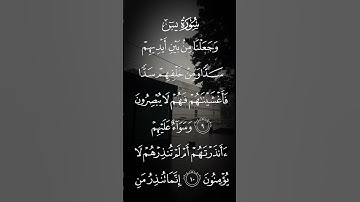 سُورَةُ يسٓ
وَجَعَلْنَا مِنۢ بَيْنِ أَيْدِيهِمْ
سَدًّا وَمِنْ خَلْفِهِمْ سَدًّا
فَأَغْشَيْنَٰهُمْ فَهُمْ لَا يُبْصِرُونَ
٩ وَسَوَآءٌ عَلَيْهِمْ
ءَأَنذَرْتَهُمْ أَمْ لَمْ تُنذِرْهُمْ لَا
يُؤْمِنُونَ ١٠ إِنَّمَا تُنذِرُ مَنِ